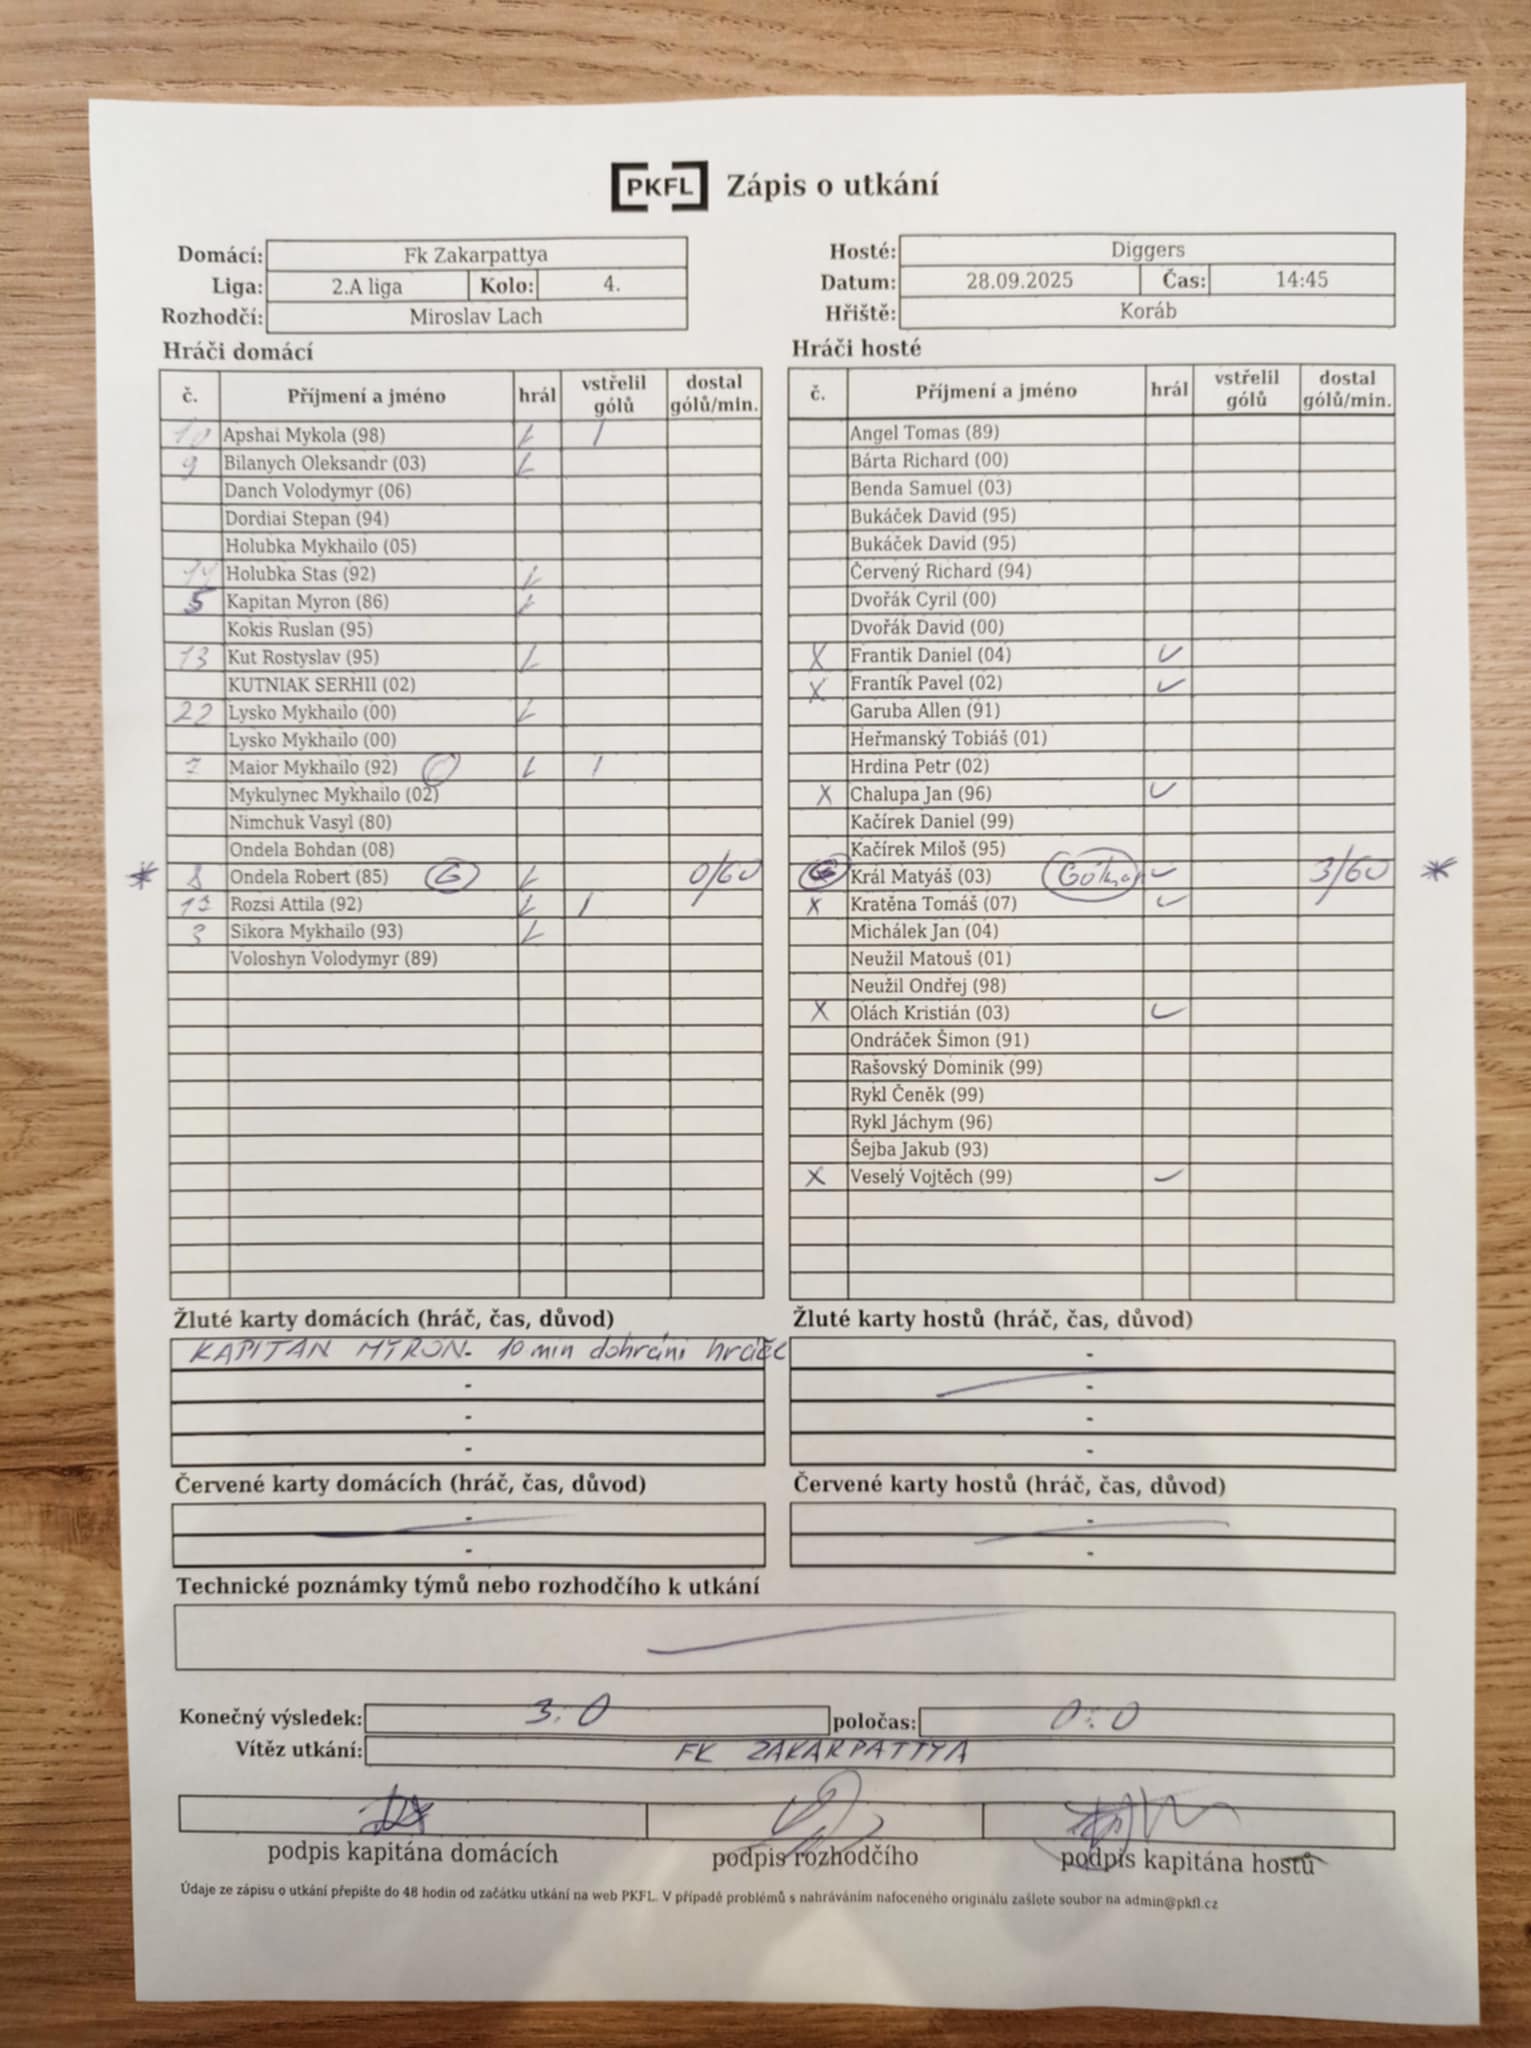 PKFL Zápis o utkání
Domácí: Fk Zakarpattya
Liga: 2.A liga Kolo: 4.
Rozhodčí: Miroslav Lach
Hosté: Diggers
Datum: 28.09.2025 Čas: 14:45
Hřiště: Koráb
Hráči domácí
č. Příjmení a jméno hrál vstřelil gólů dostal gólů/min.
10 Apshai Mykola (98) 1
9 Bilanych Oleksandr (03)
Danch Volodymyr (06)
Dordiai Stepan (94)
Holubka Mykhailo (05)
Holubka Stas (92)
5 Kapitan Myron (86)
Kokis Ruslan (95)
13 Kut Rostyslav (95)
KUTNIAK SERHII (02)
22 Lysko Mykhailo (00)
Lysko Mykhailo (00)
7 Maior Mykhailo (92) 1
Mykulynec Mykhailo (02)
Nimchuk Vasyl (80)
Ondela Bohdan (08)
* 8 Ondela Robert (85) G 0/60
Rozsi Attila (92) 1
3 Sikora Mykhailo (93)
Voloshyn Volodymyr (89)
Hráči hosté
č. Příjmení a jméno hrál vstřelil gólů dostal gólů/min.
Angel Tomas (89)
Bárta Richard (00)
Benda Samuel (03)
Bukáček David (95)
Bukáček David (95)
Červený Richard (94)
Dvořák Cyril (00)
Dvořák David (00)
X Frantik Daniel (04) ✓
X Frantík Pavel (02) ✓
Garuba Allen (91)
Heřmanský Tobiáš (01)
Hrdina Petr (02)
X Chalupa Jan (96) ✓
Kačírek Daniel (99)
Kačírek Miloš (95)
Král Matyáš (03) ✓ 3/60 *
X Kratěna Tomáš (07) ✓
Michálek Jan (04)
Neužil Matouš (01)
Neužil Ondřej (98)
X Olách Kristián (03) ✓
Ondráček Šimon (91)
Rašovský Dominik (99)
Rykl Čeněk (99)
Rykl Jáchym (96)
Šejba Jakub (93)
X Veselý Vojtěch (99) ✓
Žluté karty domácích (hráč, čas, důvod)
KAPITAN MYRON - 10 min dohrání hráče
-
-
-
Žluté karty hostů (hráč, čas, důvod)
-
-
-
-
Červené karty domácích (hráč, čas, důvod)
-
-
Červené karty hostů (hráč, čas, důvod)
-
-
Technické poznámky týmů nebo rozhodčího k utkání
Konečný výsledek: 3:0 poločas: 0:0
Vítěz utkání: FK ZAKARPATTYA
podpis kapitána domácích podpis rozhodčího podpis kapitána hostů
Údaje ze zápisu o utkání přepište do 48 hodin od začátku utkání na web PKFL. V případě problémů s nahráváním nafoceného originálu zašlete soubor na admin@pkfl.cz